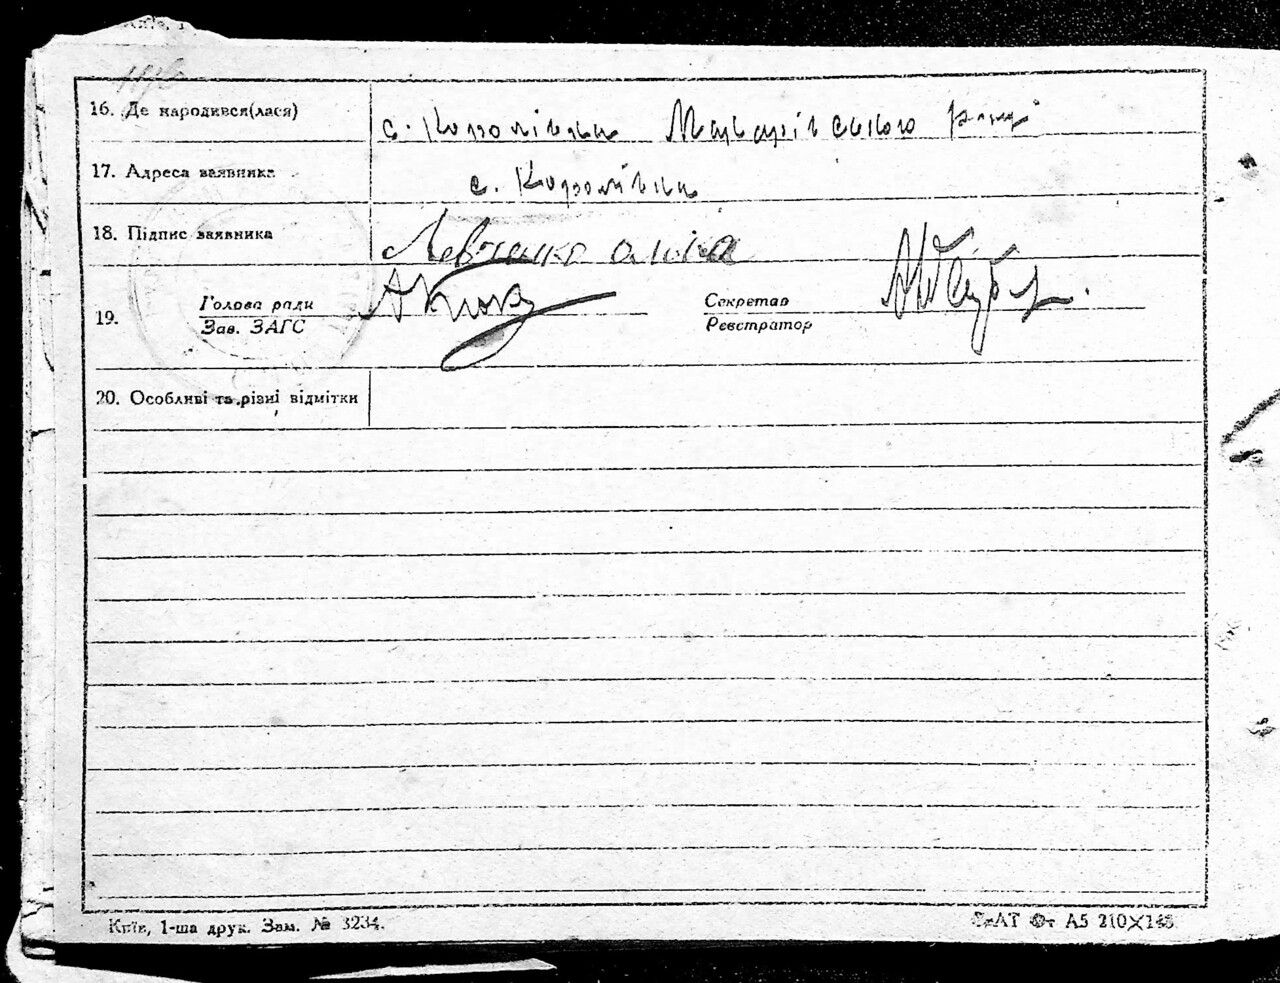 16. Де народився(лася) с. Королівка Макарівського р-ну
17. Адреса заявника с. Королівка
18. Підпис заявника Левченко
19. Голова ради
Зав. ЗАГС
Секретар
Реєстратор
20. Особливі та різні відмітки
Київ, 1-ша друк. Зам. № 3234.
Фт А5 210×148